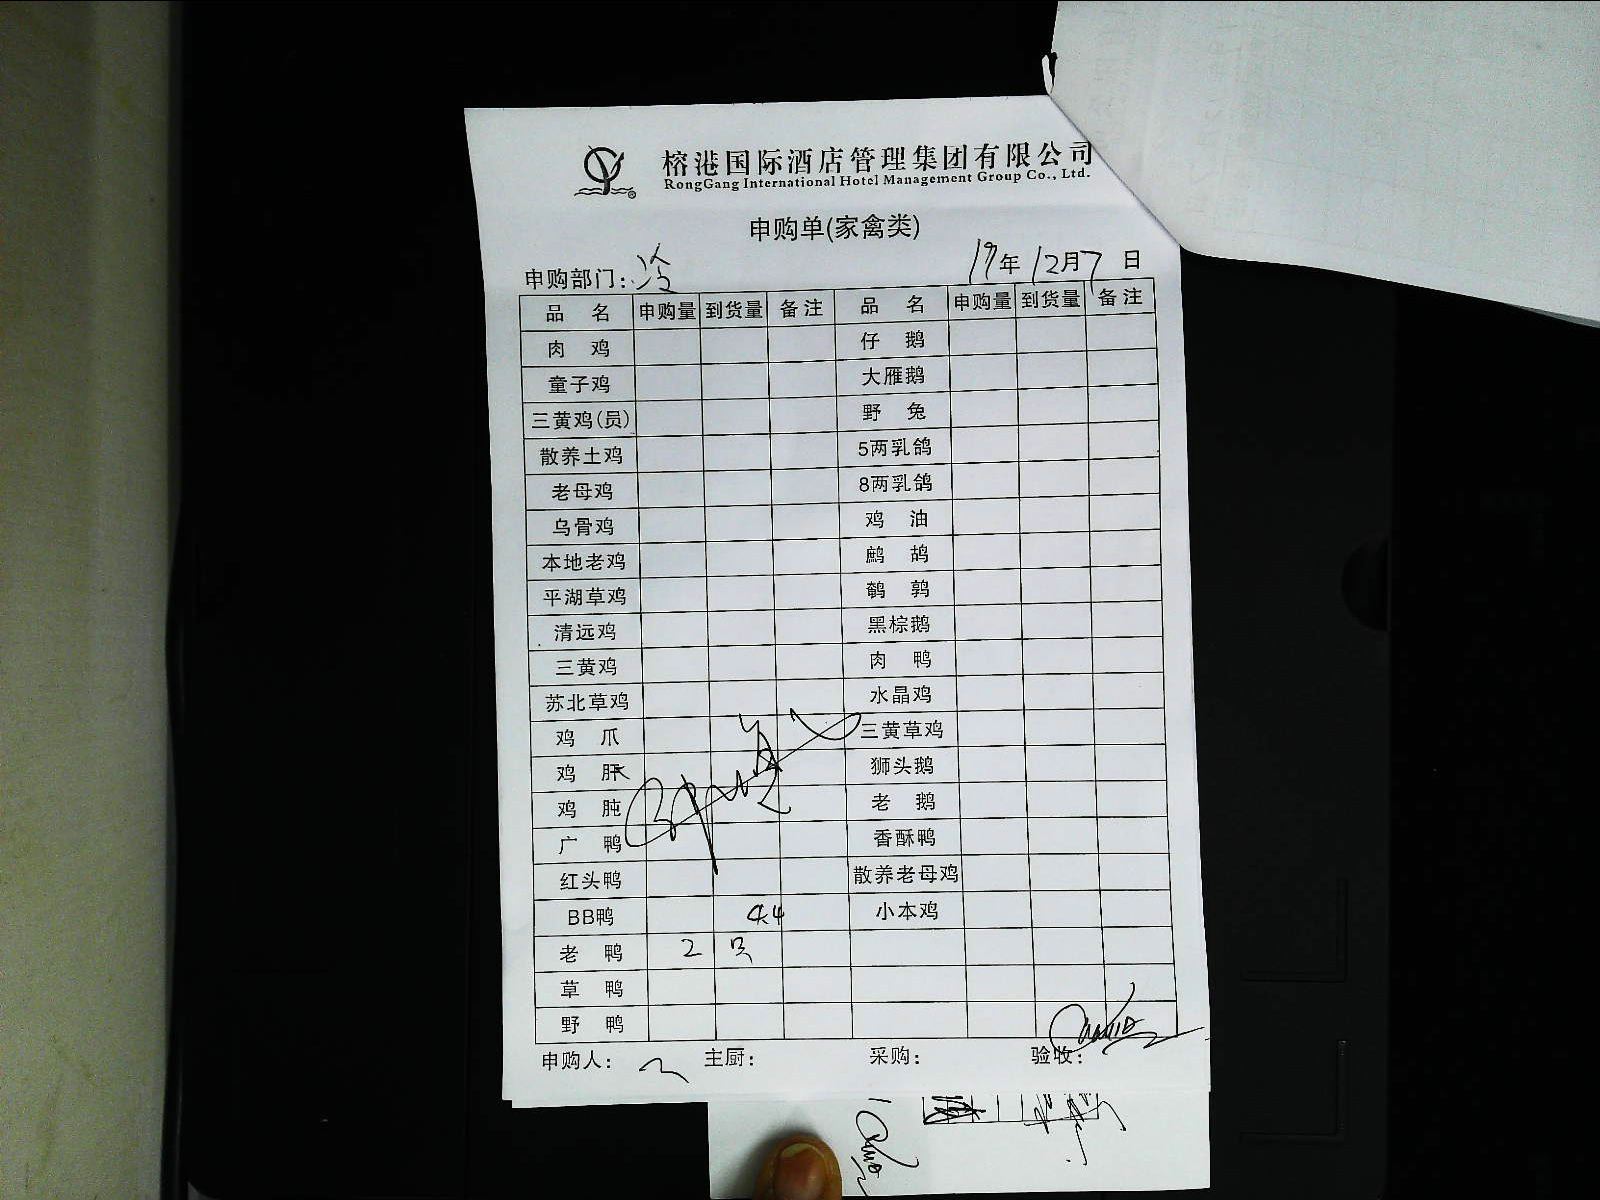 榕港国际酒店管理集团有限公司
RongGang International Hotel Management Group Co., Ltd.
申购单(家禽类)
申购部门：冷 19年12月7日
品名 申购量 到货量 备注 品名 申购量 到货量 备注
肉鸡 仔鹅
童子鸡 大雁鹅
三黄鸡(员) 野兔
散养土鸡 5两乳鸽
老母鸡 8两乳鸽
乌骨鸡 鸡油
本地老鸡 鹧鸪
平湖草鸡 鹌鹑
清远鸡 黑棕鹅
三黄鸡 肉鸭
苏北草鸡 水晶鸡
鸡爪 三黄草鸡
鸡肝 狮头鹅
鸡肫 老鹅
广鸭 香酥鸭
红头鸭 散养老母鸡
BB鸭 4.4 小本鸡
老鸭 2 只
草鸭
野鸭
申购人： 主厨： 采购： 验收：